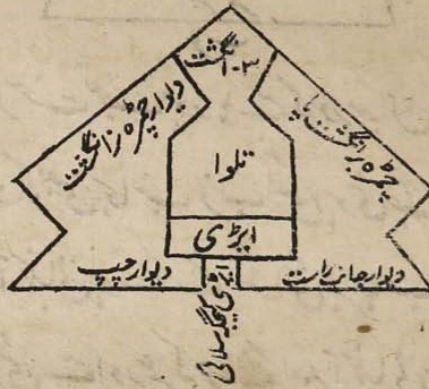 ۳-۱ انگشت
دیوار چمڑہ زانگشت
چمڑہ زانگشت پا
تلوا
ایڑی
دیوار چپ
دیوار جانب راست
ایڑی کیجگہ سلائی